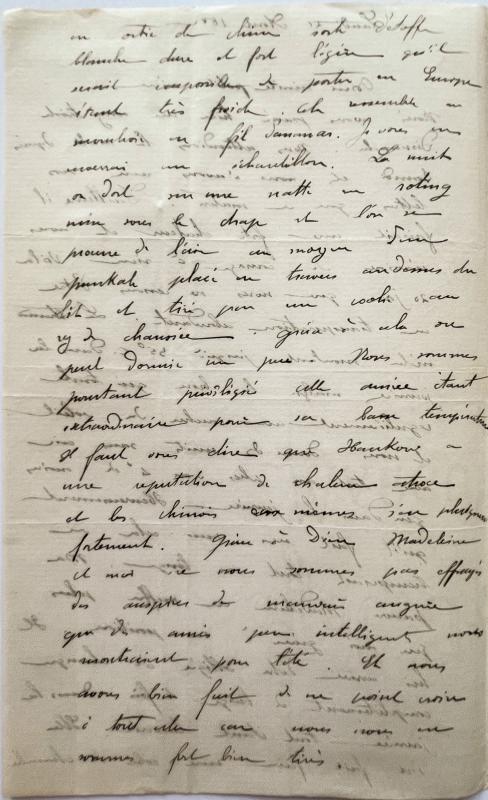 en ortie de chine sorte d'étoffe
blanche dure et fort légère qu'il
serait impossible de porter en Europe
étant très froide, cela ressemble au
mouchoir en fil d'ananas. Je vous en
enverrai un échantillon. La nuit
on dort sur une natte en roting
mise sous le drap et l'on se
procure de l'air au moyen d'un
punkah placé en travers au dessus du
lit et tiré par un coolie au
rez de chaussée. Grâce à cela on
peut dormir un peu. Nous sommes
pourtant privilégiés cette année étant
extraordinaire pour sa basse température
Il faut vous dire que Hankow a
une réputation de chaleur atroce
et les chinois eux mêmes s'en plaignent
fortement. Grâce à Dieu Madeleine
et moi ne nous sommes pas effrayés
des auspices de mauvais augure
que d'amis peu intelligents nous
montraient pour l'été. Et nous
avons bien fait de ne point croire
à tout cela car nous nous en
sommes fort bien tirés